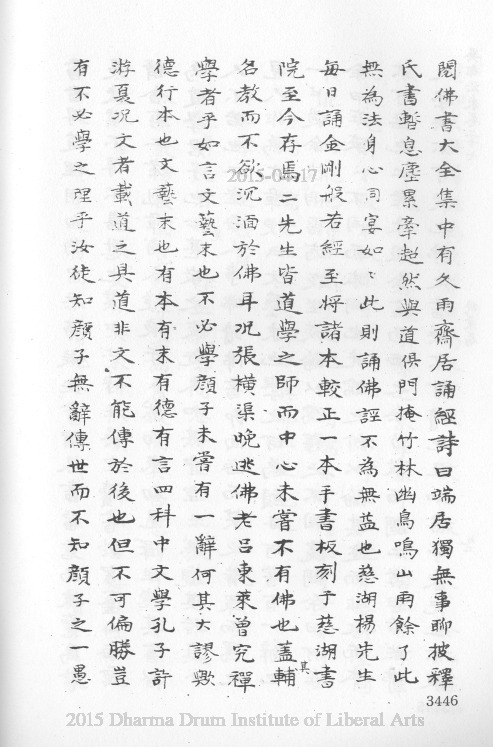 閱佛書大全集中有久雨齋居誦經詩曰端居獨無事聊披釋
氏書暫息塵累牽超然與道俱門掩竹林幽鳥鳴山雨餘了此
無為法身心同宴如〻此則誦佛經不為無益也慈湖楊先生
每日誦金剛般若經至將諸本較正一本手書板刻于慈湖書
院至今存焉二先生皆道學之師而中心未嘗不有佛也蓋其輔
名教而不欲沉湎於佛耳況張橫渠晚逃佛老呂東萊曾究禪
學者乎如言文藝末也不必學顏子未嘗有一辭何其大謬歟
德行本也文藝末也有本有末有德有言四科中文學孔子許
游夏況文者載道之具道非文不能傳於後也但不可偏勝豈
有不必學之理乎汝徒知顏子無辭傳世而不知顏子之一愚
3446
2015-04-17
2015 Dharma Drum Institute of Liberal Arts